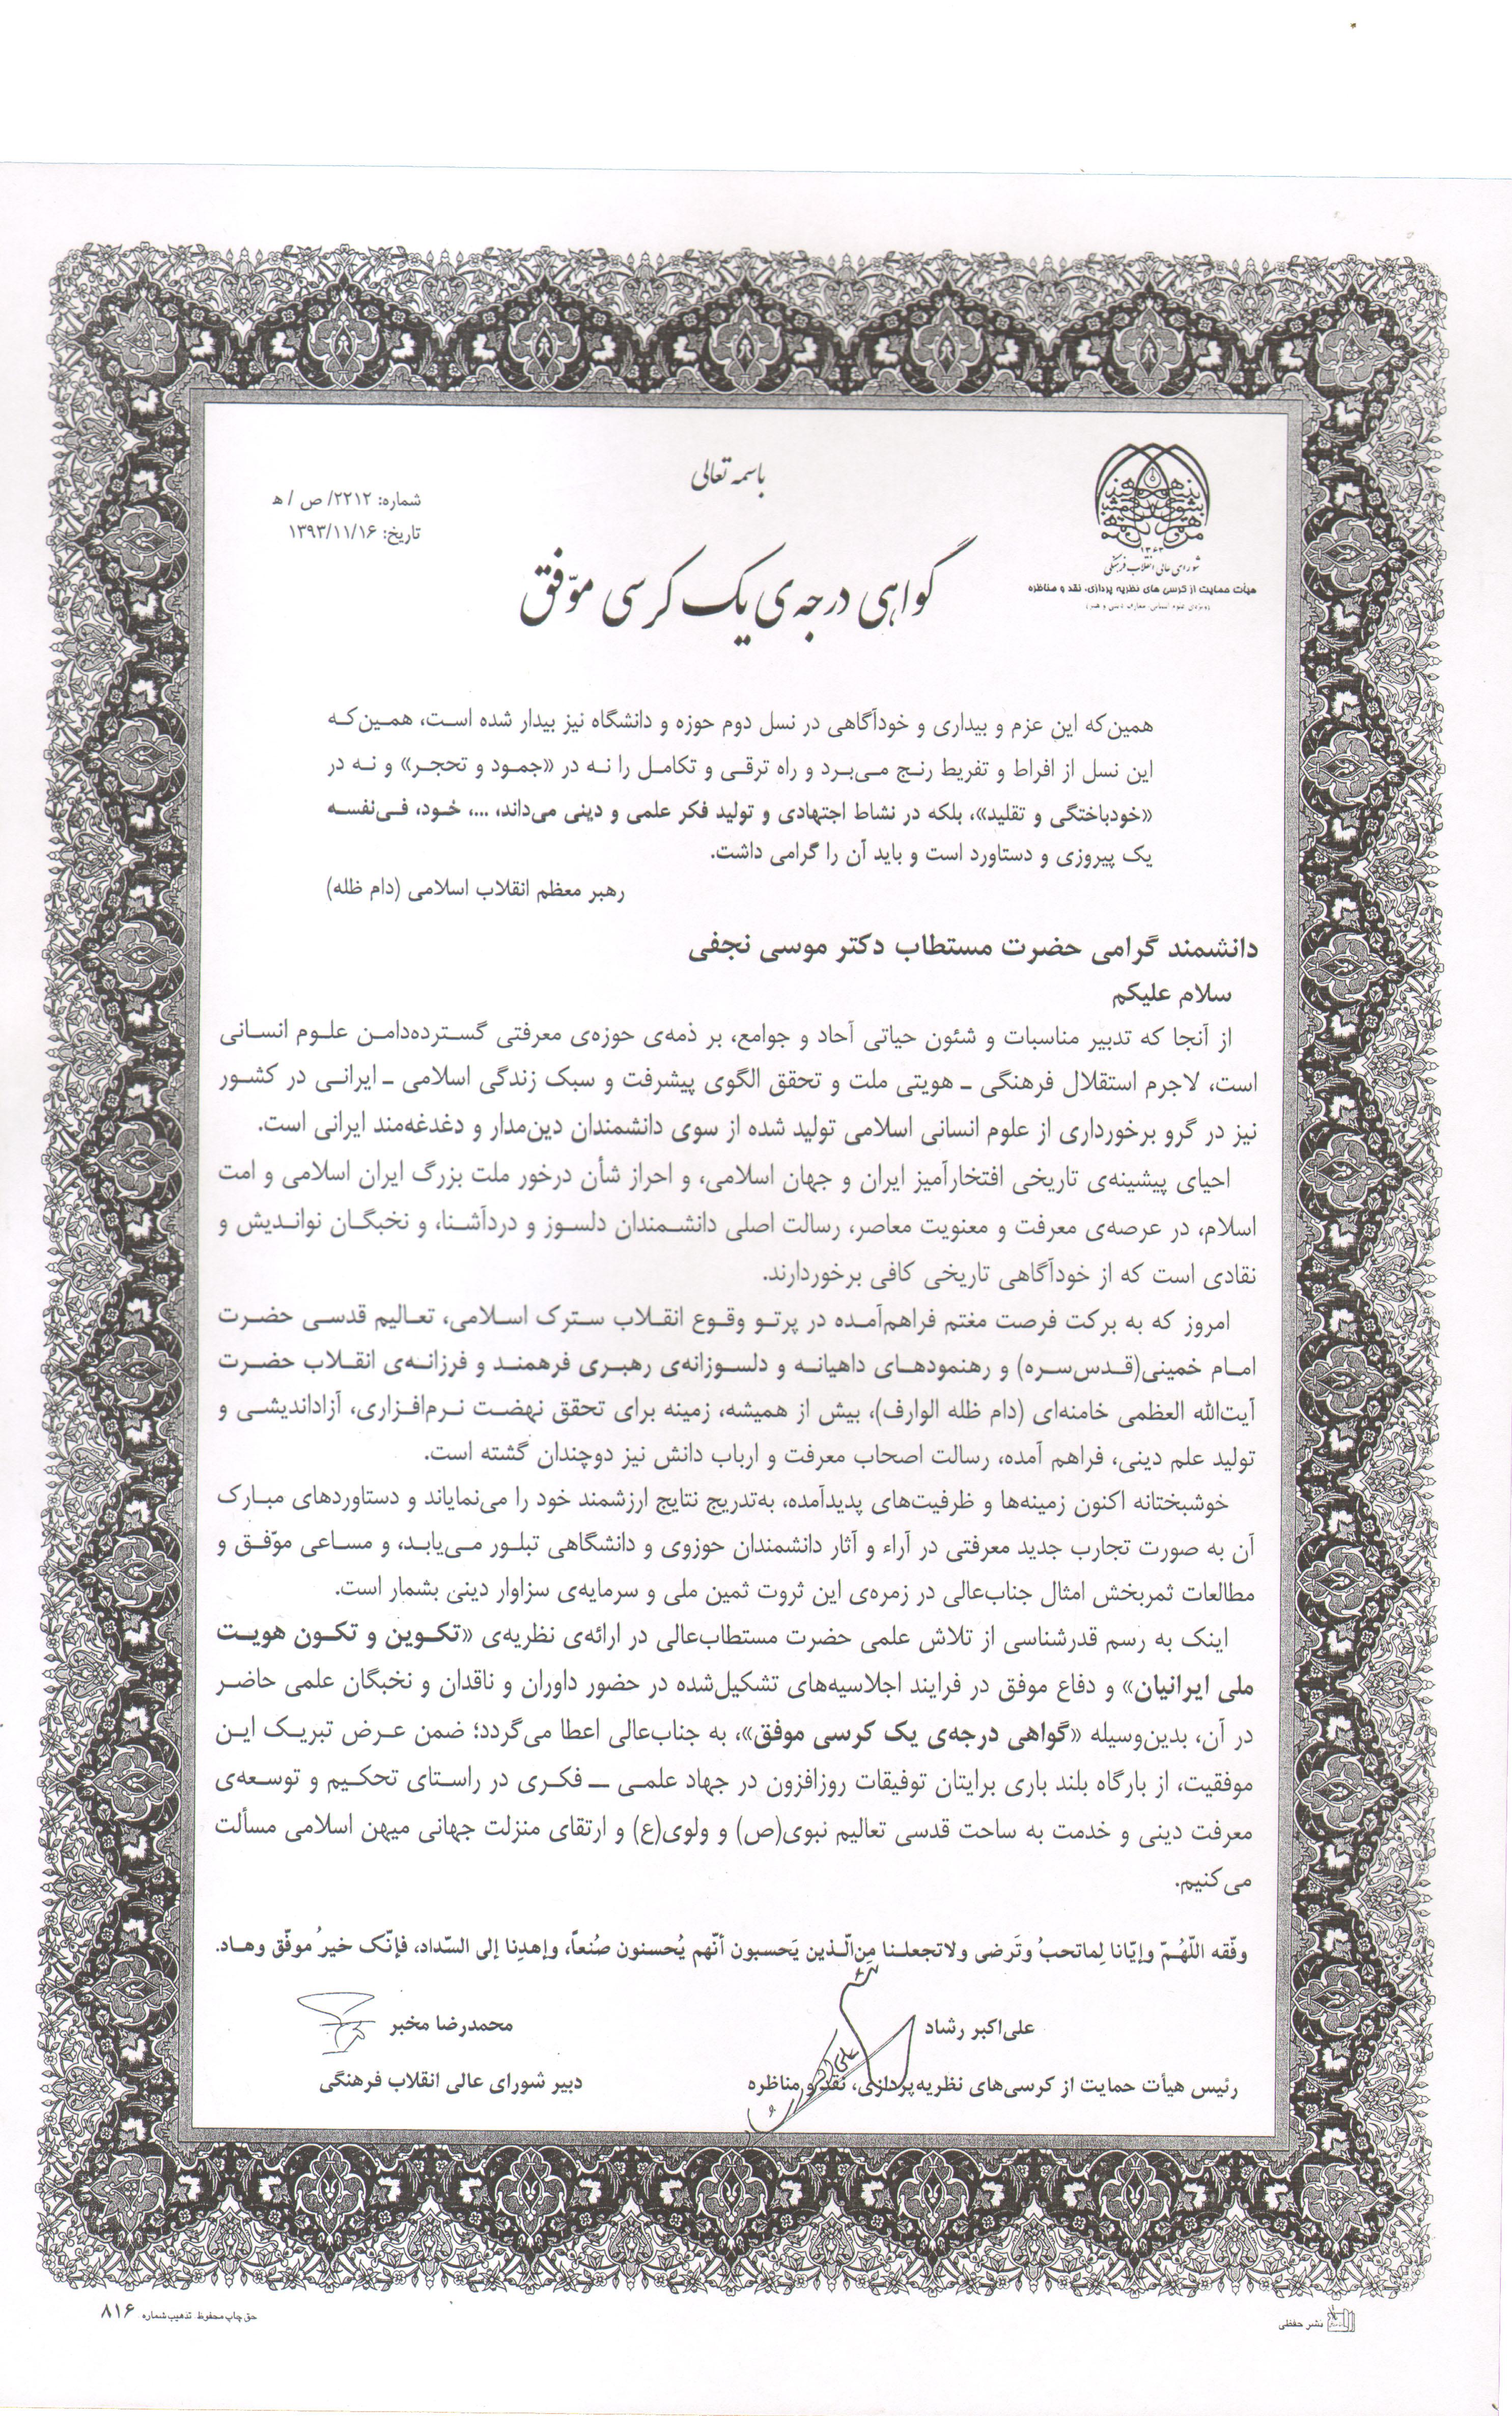 باسمه تعالی
شماره: ۲۲۱۲/ ص / ه
تاریخ: ۱۳۹۳/۱۱/۱۶
۱۳۶۳
شورای عالی انقلاب فرهنگی
هیأت حمایت از کرسی های نظریه پردازی، نقد و مناظره
(ویژه‌ی علوم انسانی، معارف دینی و هنر)
گواهی درجه‌ی یک کرسی موّفق
همین‌که این عزم و بیداری و خودآگاهی در نسل دوم حوزه و دانشگاه نیز بیدار شده است، همین‌که
این نسل از افراط و تفریط رنج می‌برد و راه ترقی و تکامل را نه در «جمود و تحجر» و نه در
«خودباختگی و تقلید»، بلکه در نشاط اجتهادی و تولید فکر علمی و دینی می‌داند، ...، خود، فی‌نفسه
یک پیروزی و دستاورد است و باید آن را گرامی داشت.
رهبر معظم انقلاب اسلامی (دام ظله)
دانشمند گرامی حضرت مستطاب دکتر موسی نجفی
سلام علیکم
از آنجا که تدبیر مناسبات و شئون حیاتی آحاد و جوامع، بر ذمه‌ی حوزه‌ی معرفتی گسترده‌دامن علوم انسانی
است، لاجرم استقلال فرهنگی ـ هویتی ملت و تحقق الگوی پیشرفت و سبک زندگی اسلامی ـ ایرانی در کشور
نیز در گرو برخورداری از علوم انسانی اسلامی تولید شده از سوی دانشمندان دین‌مدار و دغدغه‌مند ایرانی است.
احیای پیشینه‌ی تاریخی افتخارآمیز ایران و جهان اسلامی، و احراز شأن درخور ملت بزرگ ایران اسلامی و امت
اسلام، در عرصه‌ی معرفت و معنویت معاصر، رسالت اصلی دانشمندان دلسوز و دردآشنا، و نخبگان نواندیش و
نقادی است که از خودآگاهی تاریخی کافی برخوردارند.
امروز که به برکت فرصت مغتم فراهم‌آمده در پرتو وقوع انقلاب سترک اسلامی، تعالیم قدسی حضرت
امام خمینی(قدس‌سره) و رهنمودهای داهیانه و دلسوزانه‌ی رهبری فرهمند و فرزانه‌ی انقلاب حضرت
آیت‌الله العظمی خامنه‌ای (دام ظله الوارف)، بیش از همیشه، زمینه برای تحقق نهضت نرم‌افزاری، آزاداندیشی و
تولید علم دینی، فراهم آمده، رسالت اصحاب معرفت و ارباب دانش نیز دوچندان گشته است.
خوشبختانه اکنون زمینه‌ها و ظرفیت‌های پدیدآمده، به‌تدریج نتایج ارزشمند خود را می‌نمایاند و دستاوردهای مبارک
آن به صورت تجارب جدید معرفتی در آراء و آثار دانشمندان حوزوی و دانشگاهی تبلور می‌یابد، و مساعی موّفق و
مطالعات ثمربخش امثال جناب‌عالی در زمره‌ی این ثروت ثمین ملی و سرمایه‌ی سزاوار دینی بشمار است.
اینک به رسم قدرشناسی از تلاش علمی حضرت مستطاب‌عالی در ارائه‌ی نظریه‌ی «تکوین و تکون هویت
ملی ایرانیان» و دفاع موفق در فرایند اجلاسیه‌های تشکیل‌شده در حضور داوران و ناقدان و نخبگان علمی حاضر
در آن، بدین‌وسیله «گواهی درجه‌ی یک کرسی موفق»، به جناب‌عالی اعطا می‌گردد؛ ضمن عرض تبریک این
موفقیت، از بارگاه بلند باری برایتان توفیقات روزافزون در جهاد علمی ـ فکری در راستای تحکیم و توسعه‌ی
معرفت دینی و خدمت به ساحت قدسی تعالیم نبوی(ص) و ولوی(ع) و ارتقای منزلت جهانی میهن اسلامی مسألت
می‌کنیم.
وفّقه اللّهُمّ وإیّانا لِماتحبُ وتَرضی ولاتجعلنا مِن‌الّذین یَحسبون أنّهم یُحسنون صُنعاً، وإهدِنا إلی السّداد، فإنّک خیرُ موفّق وهاد.
علی‌اکبر رشاد
محمدرضا مخبر
رئیس هیأت حمایت از کرسی‌های نظریه‌پردازی، نقد و مناظره
دبیر شورای عالی انقلاب فرهنگی
نشر حفظی
حق چاپ محفوظ تذهیب شماره ۸۱۶